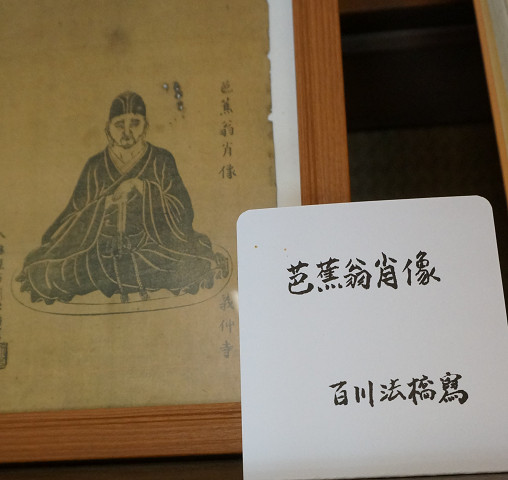 芭蕉翁肖像
義仲寺
芭蕉翁肖像
百川法橋寫